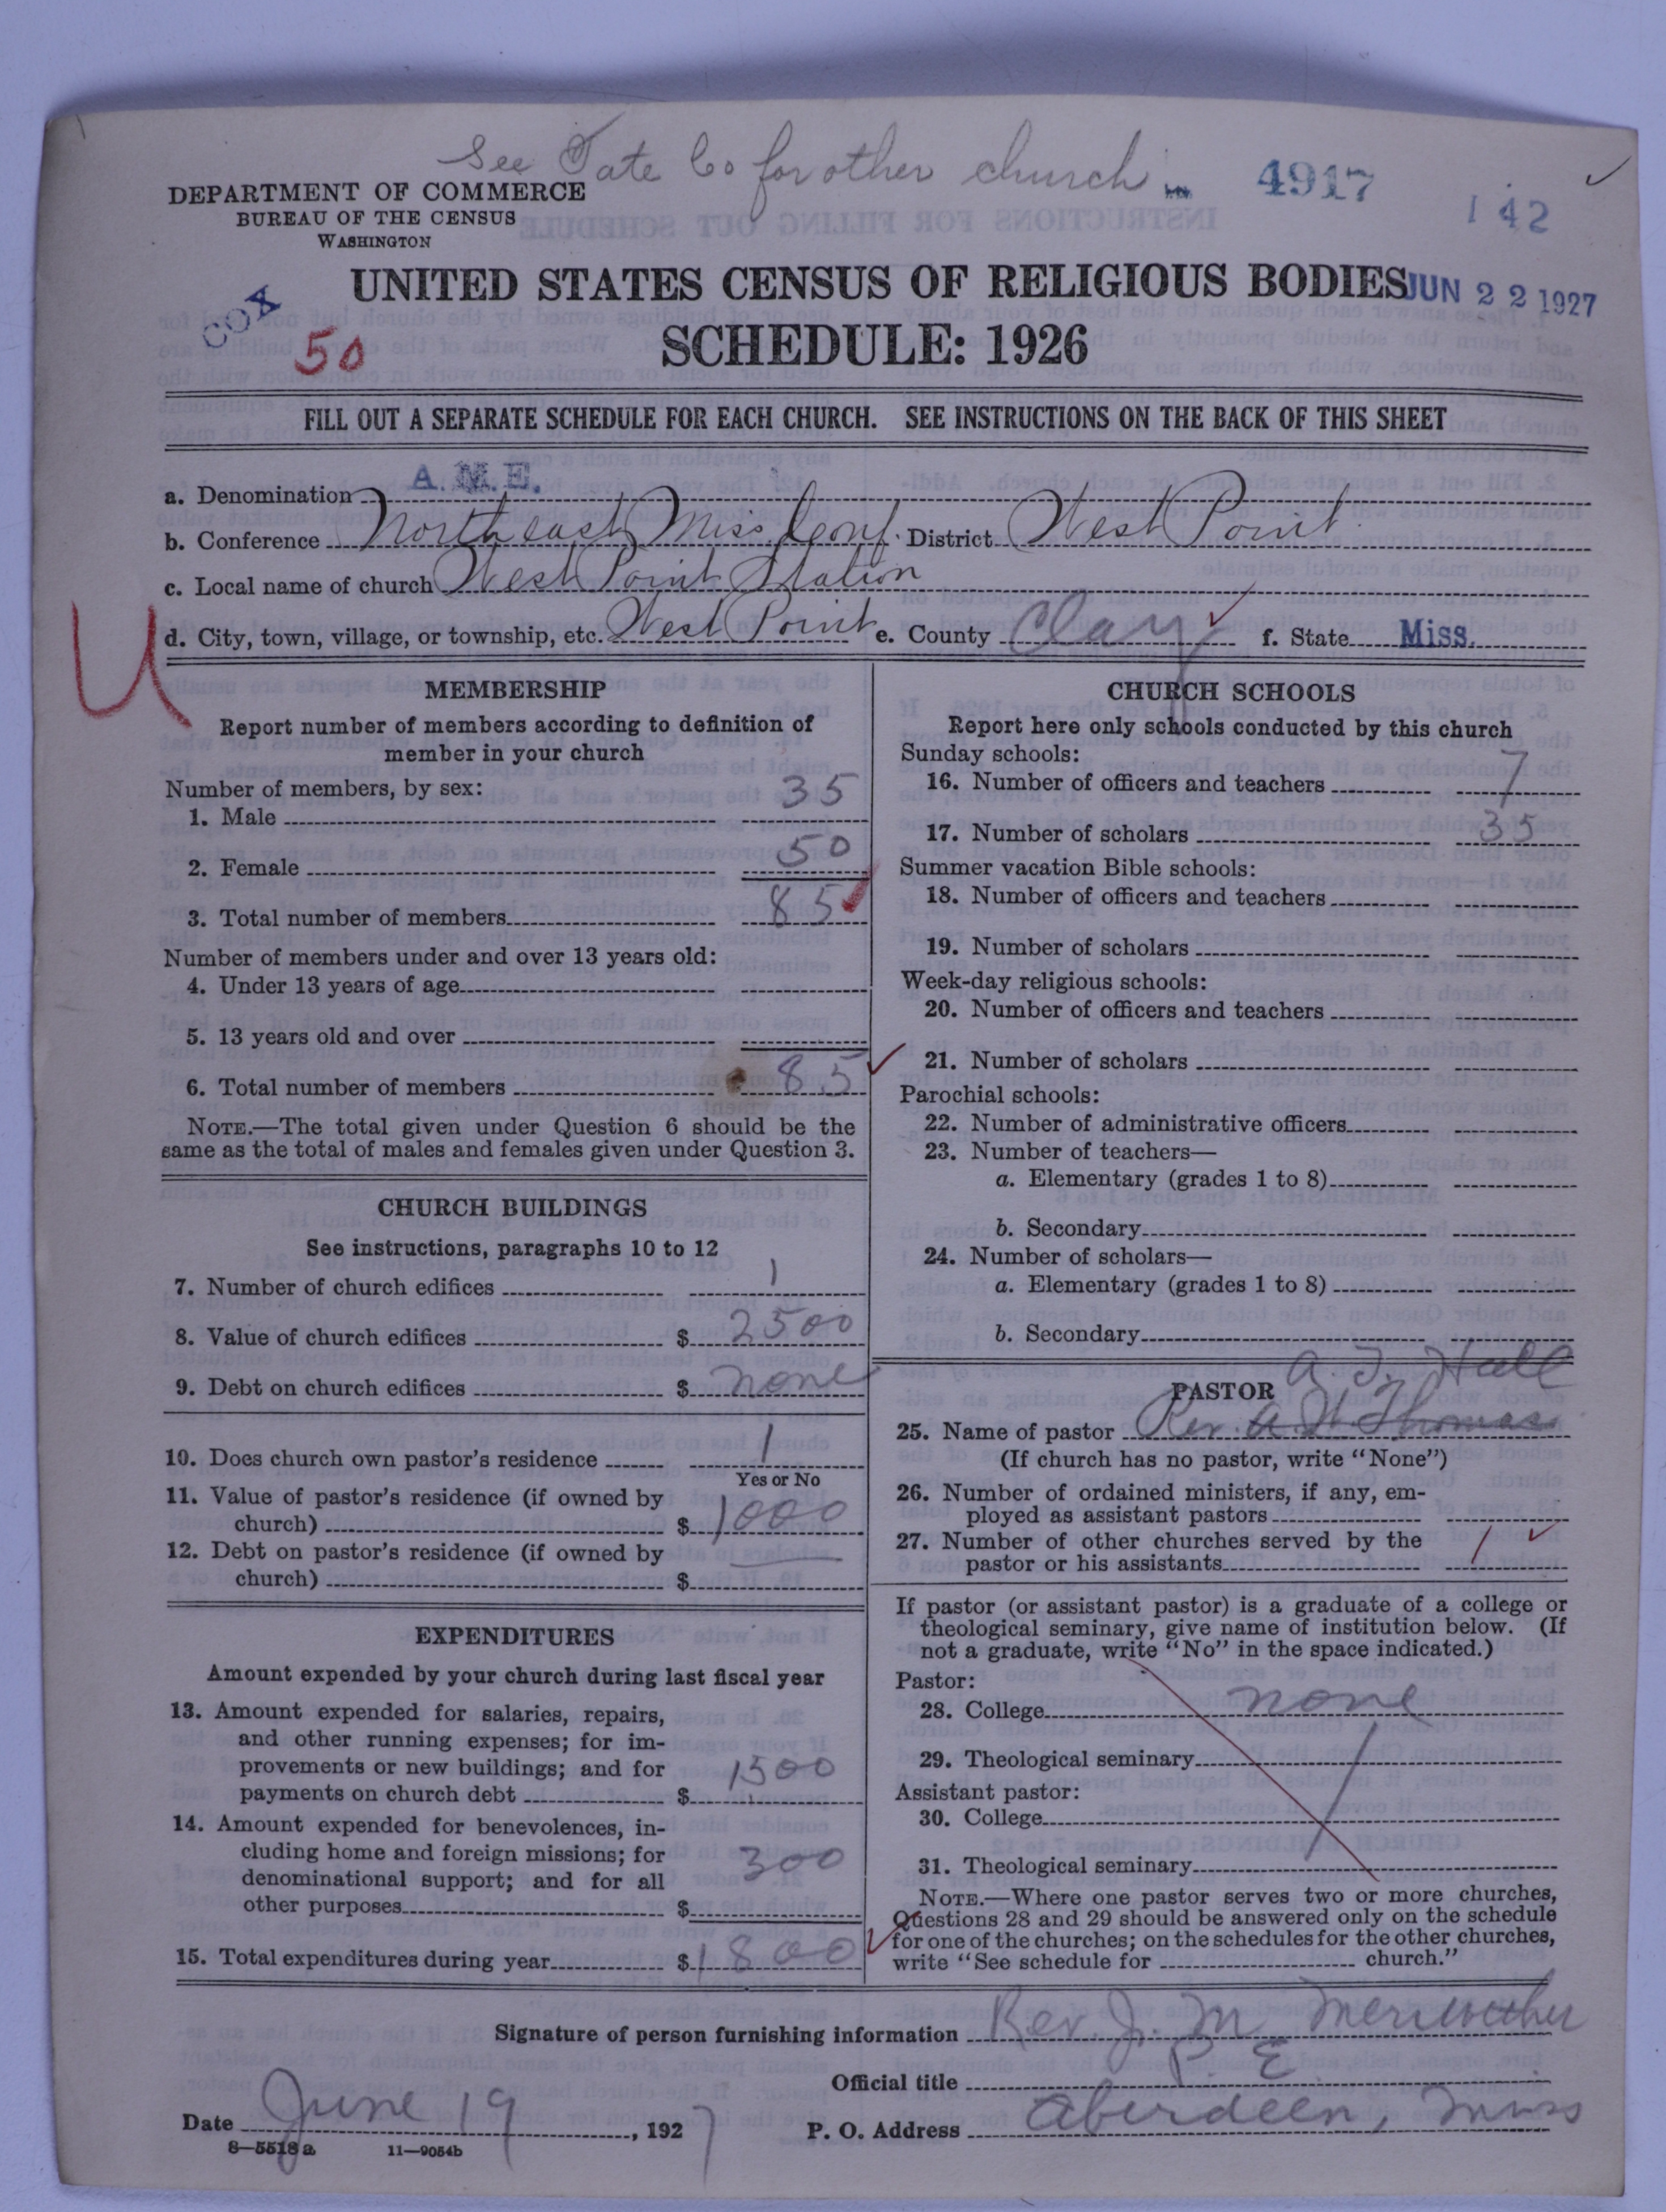 See Tate Co for other church
4917
142
DEPARTMENT OF COMMERCE
BUREAU OF THE CENSUS
WASHINGTON
UNITED STATES CENSUS OF RELIGIOUS BODIES
JUN 22 1927
COX
50
SCHEDULE: 1926
FILL OUT A SEPARATE SCHEDULE FOR EACH CHURCH. SEE INSTRUCTIONS ON THE BACK OF THIS SHEET
a. Denomination A. M. E.
b. Conference Northeast Miss. Conf. District West Point
c. Local name of church West Point Station
d. City, town, village, or township, etc. West Point e. County Clay f. State Miss.
U
MEMBERSHIP
Report number of members according to definition of
member in your church
Number of members, by sex:
1. Male 35
2. Female 50
3. Total number of members 85
Number of members under and over 13 years old:
4. Under 13 years of age
5. 13 years old and over
6. Total number of members 85
NOTE.—The total given under Question 6 should be the
same as the total of males and females given under Question 3.
CHURCH BUILDINGS
See instructions, paragraphs 10 to 12
7. Number of church edifices 1
8. Value of church edifices $ 2500
9. Debt on church edifices $ none
10. Does church own pastor's residence 1
Yes or No
11. Value of pastor's residence (if owned by
church) $ 1000
12. Debt on pastor's residence (if owned by
church) $
EXPENDITURES
Amount expended by your church during last fiscal year
13. Amount expended for salaries, repairs,
and other running expenses; for im-
provements or new buildings; and for
payments on church debt $ 1500
14. Amount expended for benevolences, in-
cluding home and foreign missions; for
denominational support; and for all
other purposes $ 300
15. Total expenditures during year $ 1800
CHURCH SCHOOLS
Report here only schools conducted by this church
Sunday schools:
16. Number of officers and teachers 7
17. Number of scholars 35
Summer vacation Bible schools:
18. Number of officers and teachers
19. Number of scholars
Week-day religious schools:
20. Number of officers and teachers
21. Number of scholars
Parochial schools:
22. Number of administrative officers
23. Number of teachers—
a. Elementary (grades 1 to 8)
b. Secondary
24. Number of scholars—
a. Elementary (grades 1 to 8)
b. Secondary
A. T. Hall
PASTOR
25. Name of pastor Rev. A. W. Thomas
(If church has no pastor, write "None")
26. Number of ordained ministers, if any, em-
ployed as assistant pastors
27. Number of other churches served by the
pastor or his assistants 1
If pastor (or assistant pastor) is a graduate of a college or
theological seminary, give name of institution below. (If
not a graduate, write "No" in the space indicated.)
Pastor:
28. College none
29. Theological seminary
Assistant pastor:
30. College
31. Theological seminary
NOTE.—Where one pastor serves two or more churches,
Questions 28 and 29 should be answered only on the schedule
for one of the churches; on the schedules for the other churches,
write "See schedule for church."
Signature of person furnishing information Rev. J. M. Meriwether
Official title P. E.
Date June 19, 1927 P. O. Address Aberdeen, Miss
8—5518a 11—9054b